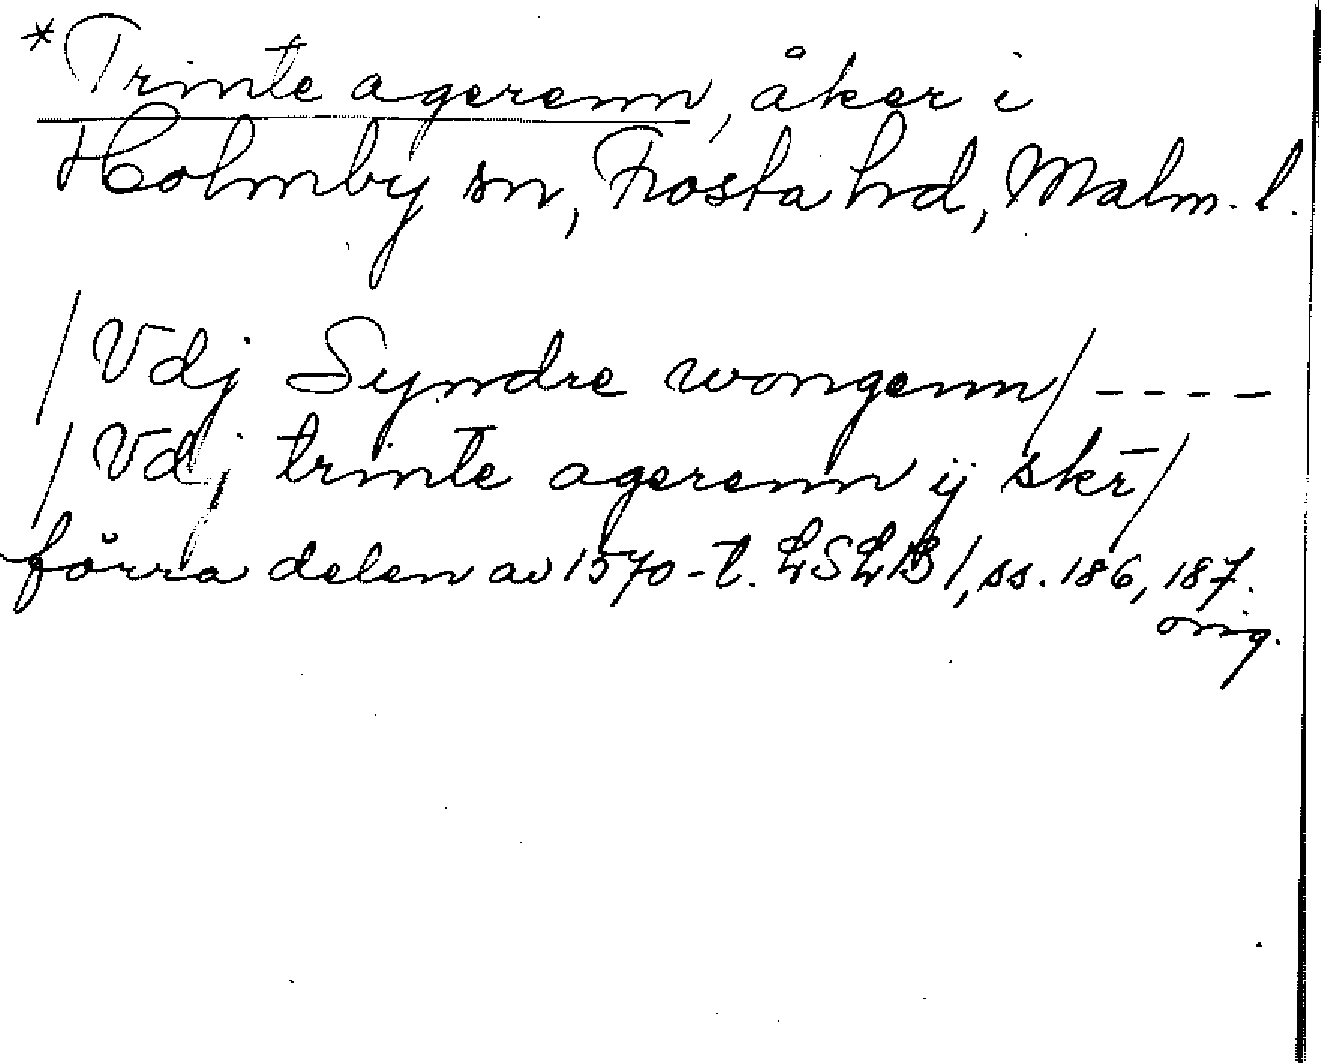 *Trinte agerenn, åker i
Holmby sn, Frosta hd, Malm. l.
/Vdj Syndre wongenn/ ----
/Vdj trinte agerenn ij skr̄/
förra delen av 1570-t. LSLB 1, ss. 186, 187.
orig.